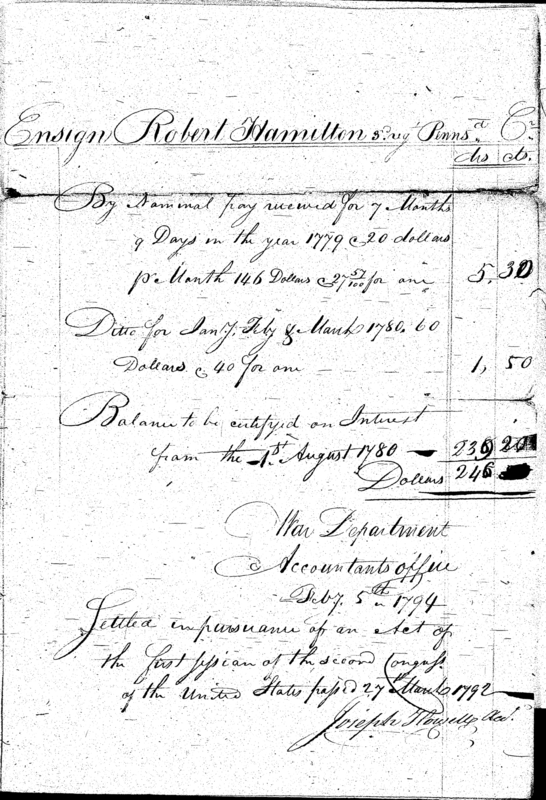 Ensign Robert Hamilton 5 regt Pennsa Cr
drs cts.
By Nominal pay received for 7 Months
9 Days in the year 1779 @ 20 dollars
pr Month 146 Dollars @ 27 57/100 for one 5, 30
Ditto for Jany, Feby & March 1780, 60
Dollars @ 40 for one 1, 50
Balance to be certifyed on Interest
from the 1st August 1780 239 20
Dollars 246
War Department
Accountants office
Feby. 5th 1794
Settled in pursuance of an Act of
the first session of the second Congress
of the United States passed 27th March 1792
Joseph Howell Act.